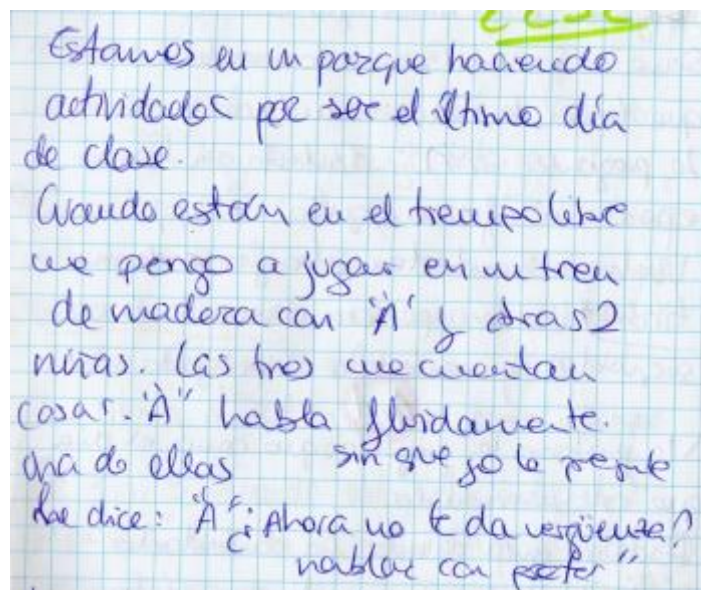 Estamos en un parque haciendo
actividades por ser el último día
de clase.
Cuando están en el tiempo libre
me pongo a jugar en un tren
de madera con "A" y otras 2
niñas. Las tres me cuentan
cosas. "A" habla fluidamente.
una de ellas sin que yo le pregunte
le dice: "A" ¿Ahora no te da vergüenza?
hablar con profes"